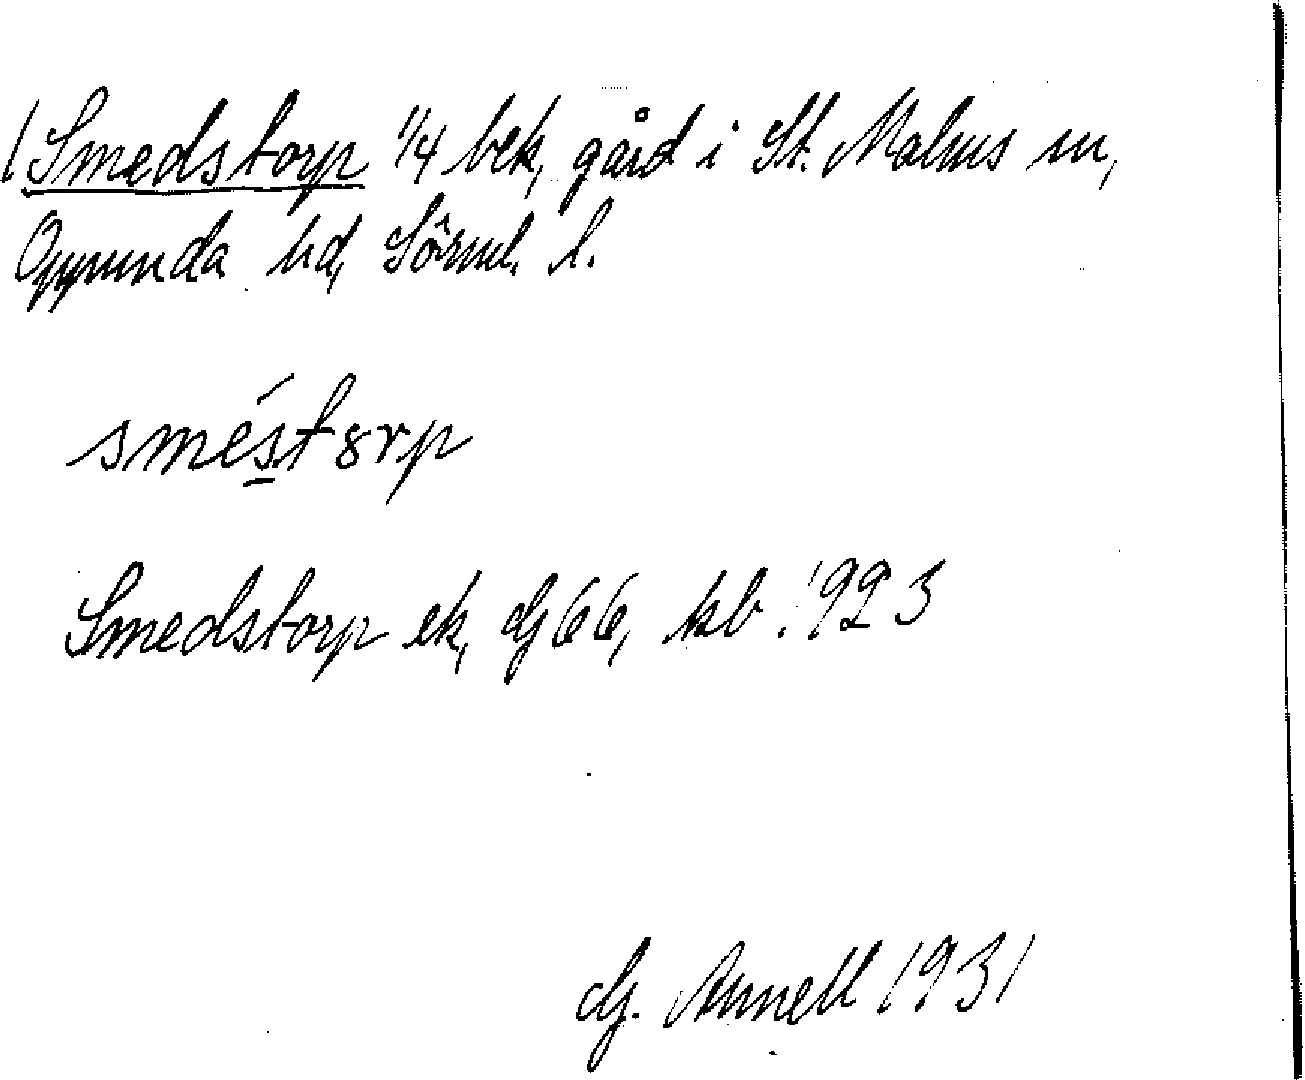 1 Smedstorp 1/4 bek, gård i St. Malms sn,
Oppunda hd, Sörml. l.
sméstȣrp
Smedstorp ek, G 66, kb. 1923
G. Annell 1931